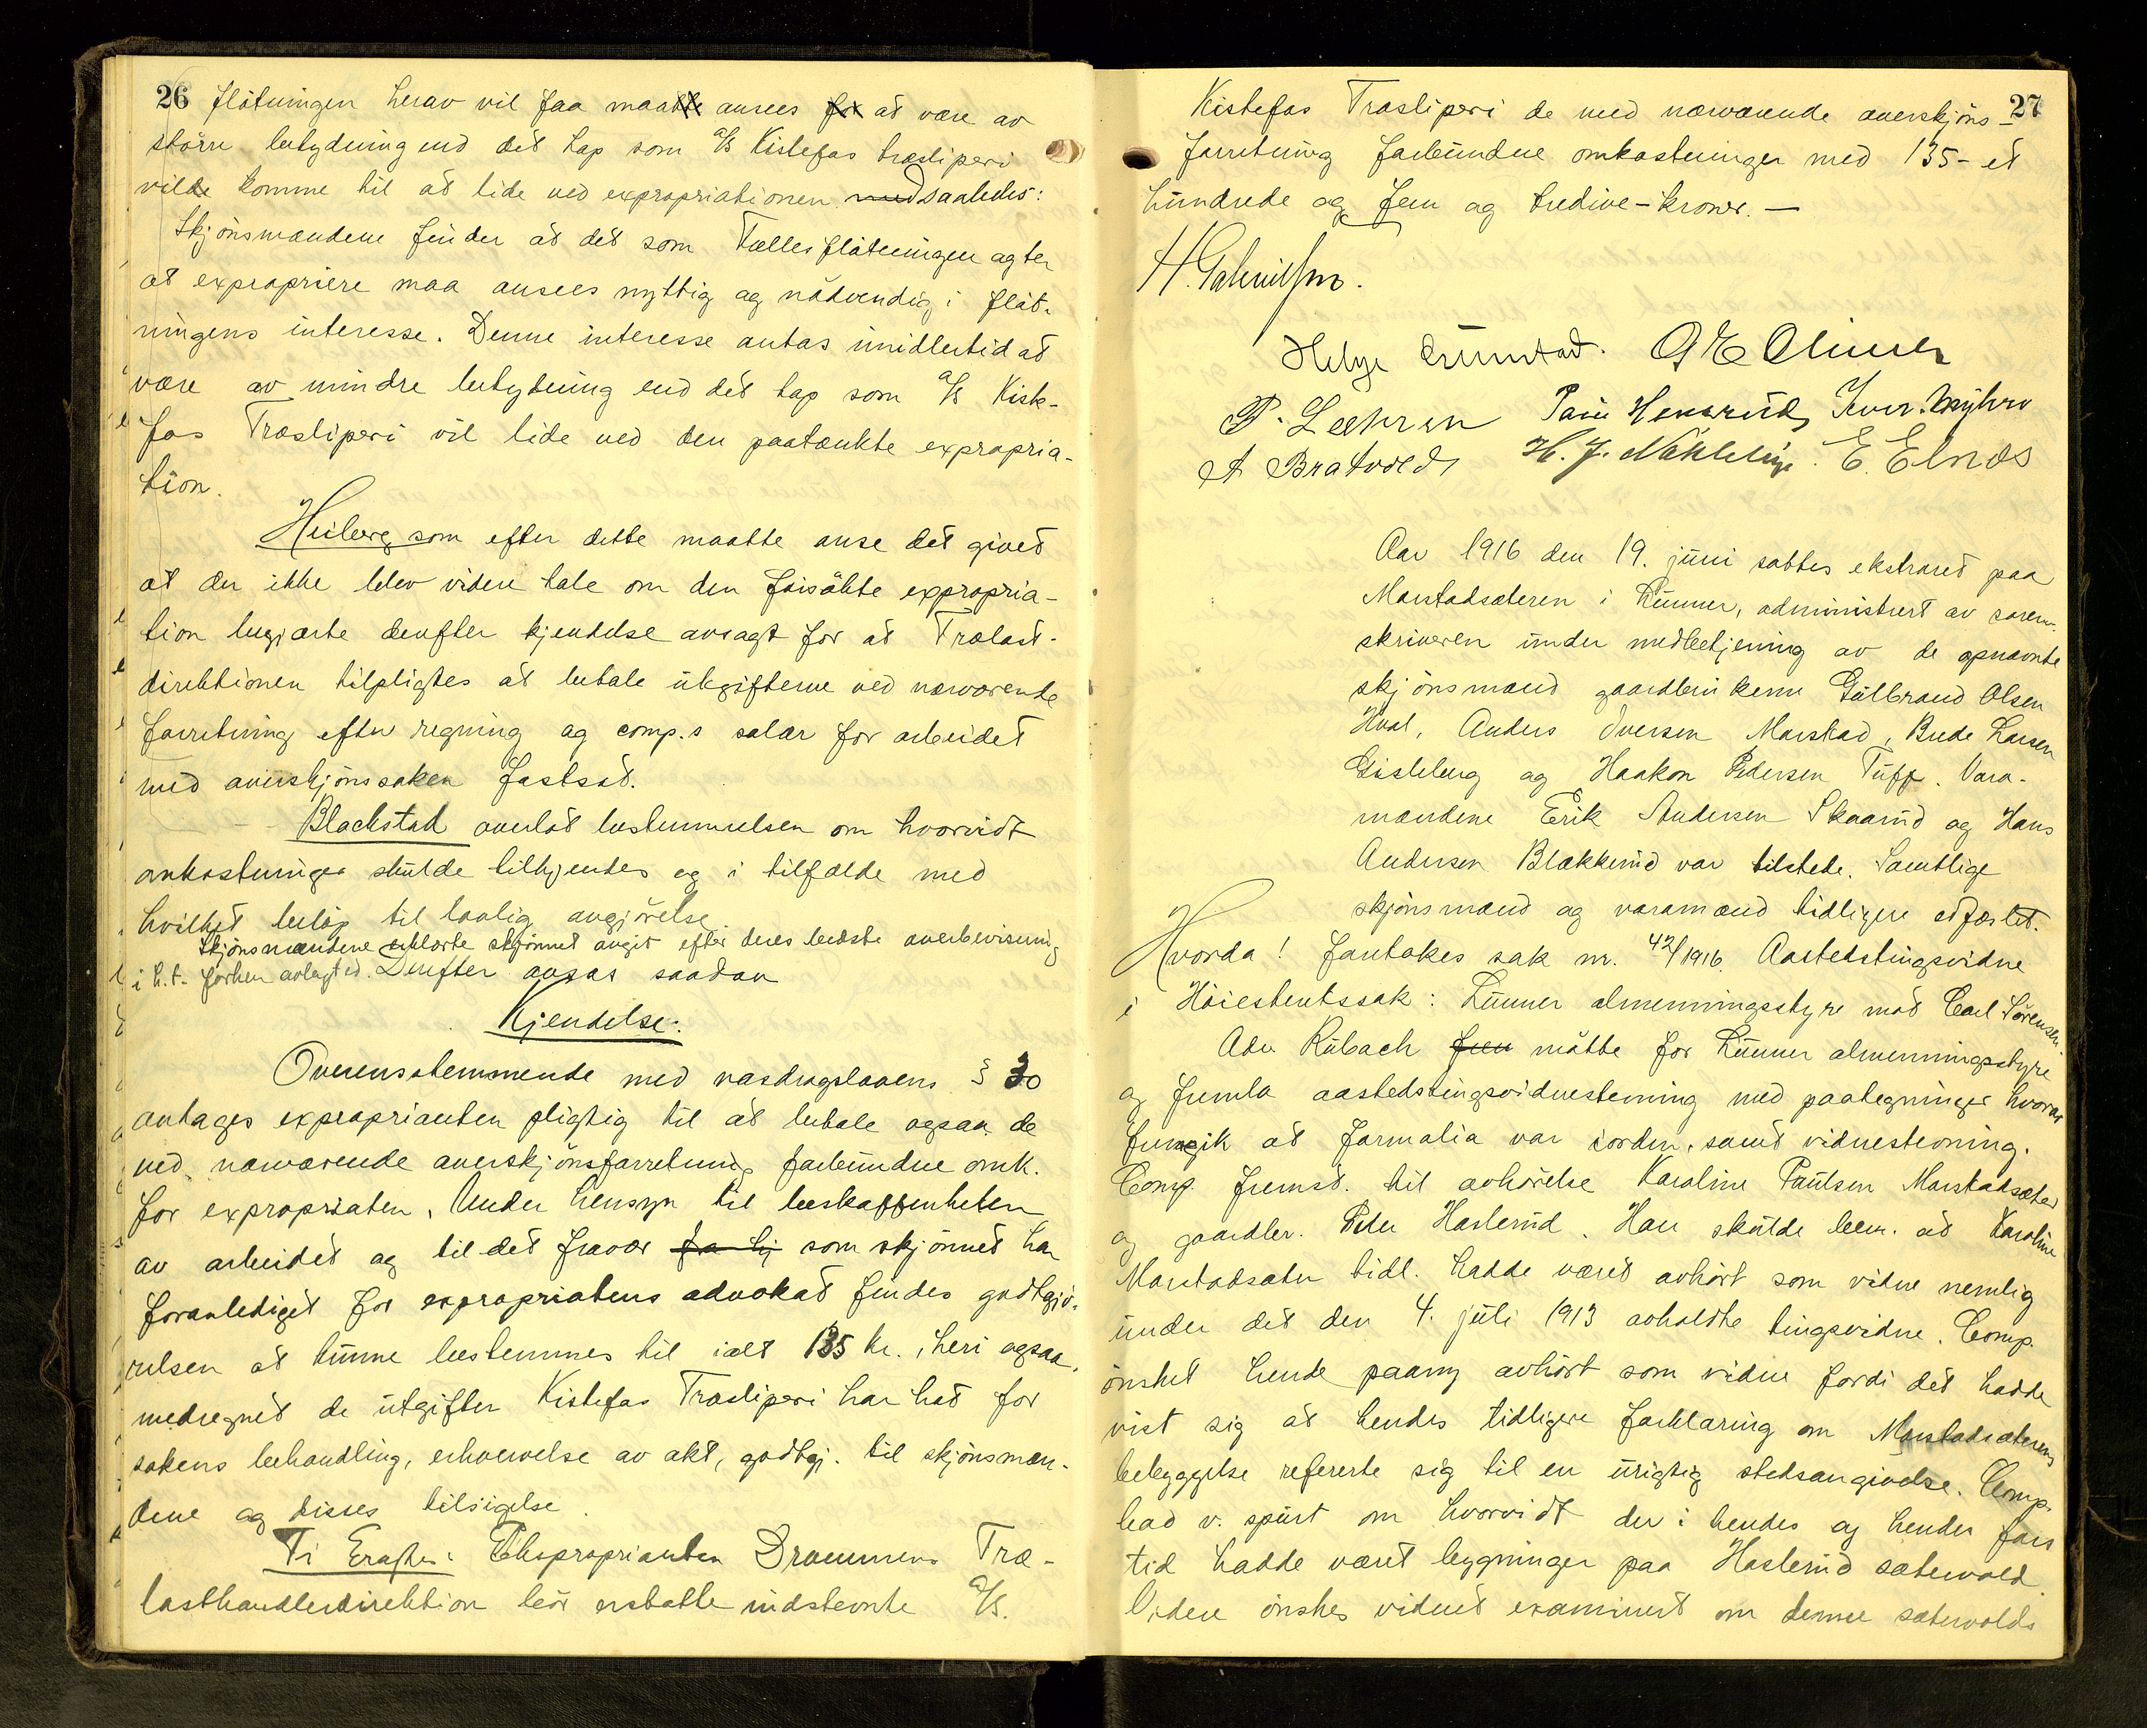 26 flötningen herav vil faa maatte ansees for at være av
större betydning end det tap som A/S Kistefos træsliperi
vilde komme til at lide ved expropriationen med saaledes:
Skjönsmændene finder at det som Fællesflötningen agter
at expropriere maa ansees nyttig og nödvendig i flöt-
ningens interesse. Denne interesse antas imidlertid at
være av mindre betydning end det tap som A/S Kiste-
fos Træsliperi vil lide ved den paatænkte expropria-
tion.
Heiberg som efter dette maatte anse det givet
at der ikke blev videre tale om den forsökte expropria-
tion begjærte derefter kjendelse avsagt for at Trælast-
direktionen tilpligtes at betale utgifterne ved nærværende
forretning efter regning og comp.s salær for arbeidet
med overskjönssaken fastsat.
Blackstad overlot bestemmelsen om hvorvidt
omkostninger skulde tilkjendes og i tilfælde med
hvilket belöp til lovlig avgjörelse.
Skjönsmændene erklærte skjönnet avgit efter deres bedste overbevisning
i h.t. forhen avlagt ed. Derefter avsas saadan
Kjendelse:
Overensstemmende med vasdragslovens § 30
antages exproprianten pligtig til at betale ogsaa de
ved nærværende overskjönsforretning forbundne omk.
for expropriaten. Under hensyn til beskaffenheten
av arbeidet og til det fravær fra hj som skjönnet har
foranlediget for expropriatens advokat findes godtgjö-
relsen at kunne bestemmes til ialt 135 kr., heri ogsaa
medregnet de utgifter Kistefos Træsliperi har hat for
sakens behandling, erhvervelse av akt, godtgj. til skjönsmæn-
dene og disses tilsigelse.
Ti Eragtes: Ekspropianten Drammens Træ-
lasthandlerdirektion bör erstatte indstevnte A/S.
27
Kistefos Træsliperi de med nærværende overskjöns-
forretning forbundne omkostninger med 135- et
hundrede og fem og tredive - kroner. —
H. Gabrielsen.
Helge Grimstad. G E Olimer
P. Leehren Paul Hensrud, Iver Myhre
A Bratvold H. J. Nökleby. E. Elnes
Aar 1916 den 19. juni sattes ekstraret paa
Marstadsæteren i Lunner, administrert av soren-
skriveren under medbetjening av de opnævnte
skjönsmænd gaardbrukerne Gulbrand Olsen
Hval, Anders Iversen Marstad, Brede Larsen
Gisleberg og Haakon Pedersen Tuff. Vara-
mændene Erik Andersen Skaarud og Hans
Andersen Blækkerud var tilstede. Samtlige
skjönsmænd og varamænd tidligere edfæstet.
Hvorda! Foretokes sak nr. 42/1916. Aastedstingsvidne
i Höiesteretssak: Lunner almenningsstyre mot Carl Sörensen.
Adv. Rubach frem mötte for Lunner almenningsstyre
og fremla aastedstingsvidnestevning med paategninger hvorav
fremgik at formalia var iorden, samt vidnestevning.
Comp. fremst. til avhörelse Karoline Paulsen Marstadsæter
og gaardbr. Peder Haslerud. Han skulde bem. at Karoline
Marstadsæter tidl. hadde været avhört som vidne nemlig
under det den 4. juli 1913 avholdte tingsvidne. Comp.
önsket hende paany avhört som vidne fordi det hadde
vist sig at hendes tidligere forklaring om Marstadsæterens
bebyggelse refererte sig til en urigtig stedsangivelse. Comp.
bad v. spurt om hvorvidt der i hendes og hendes fars
tid hadde været bygninger paa Haslerud sætervold.
Videre önskes vidnet examinert om denne sætervolds